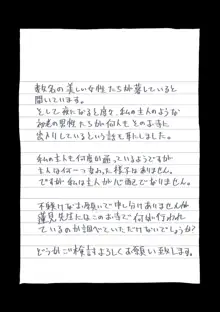 数名の美しい女性たちが暮していると
聞いています。
そして夜になると度々、私の主人のような
初老の男性たちが何人もそのお寺に
出入りしているという話を耳にしました。
私の主人も何度か通っているようですが
主人は何一つ変わった様子はありません。
ですが私は主人が心配でなりません。
不躾けなお願いで申し分けありませんが
蓮見先生にはこのお寺で何が行われ
ているのか調べていただけないでしょうか?
どうかご検討よろしくお願い致します。